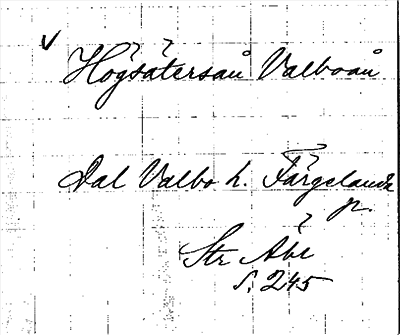 v Högsätersån Valboån
Dal Valbo h. Färgelanda
p.
Str Åbl
s. 245